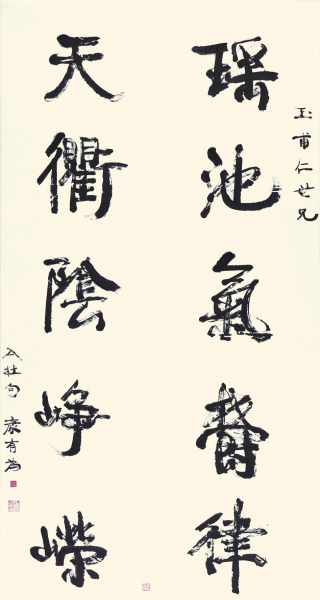 玉甫仁世兄
瑤池氣鬱律
天衢陰崢嶸
杜句 康有為